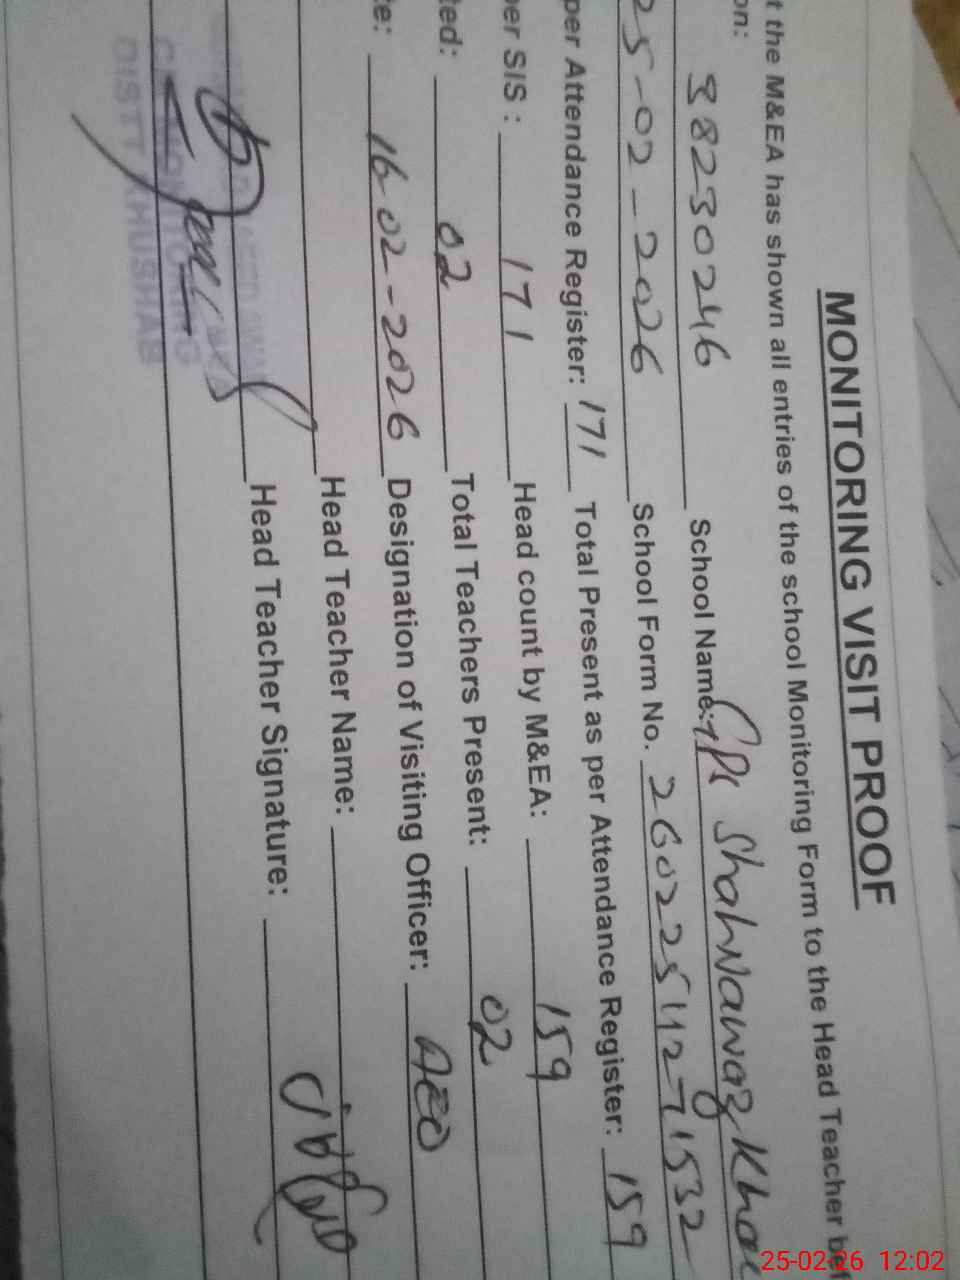 MONITORING VISIT PROOF
t the M&EA has shown all entries of the school Monitoring Form to the Head Teacher
on:
38230246 School Name: GPS Shahnawaz Khan
25-02-2026 School Form No. 26022511271532
per Attendance Register: 171 Total Present as per Attendance Register: 159
per SIS: 171 Head count by M&EA: 159
ted: 02 Total Teachers Present: 02
te: 16-02-2026 Designation of Visiting Officer: AEO
Head Teacher Name:
Head Teacher Signature:
MONITORING
DISTT KHUSHAB
25-02-26 12:02